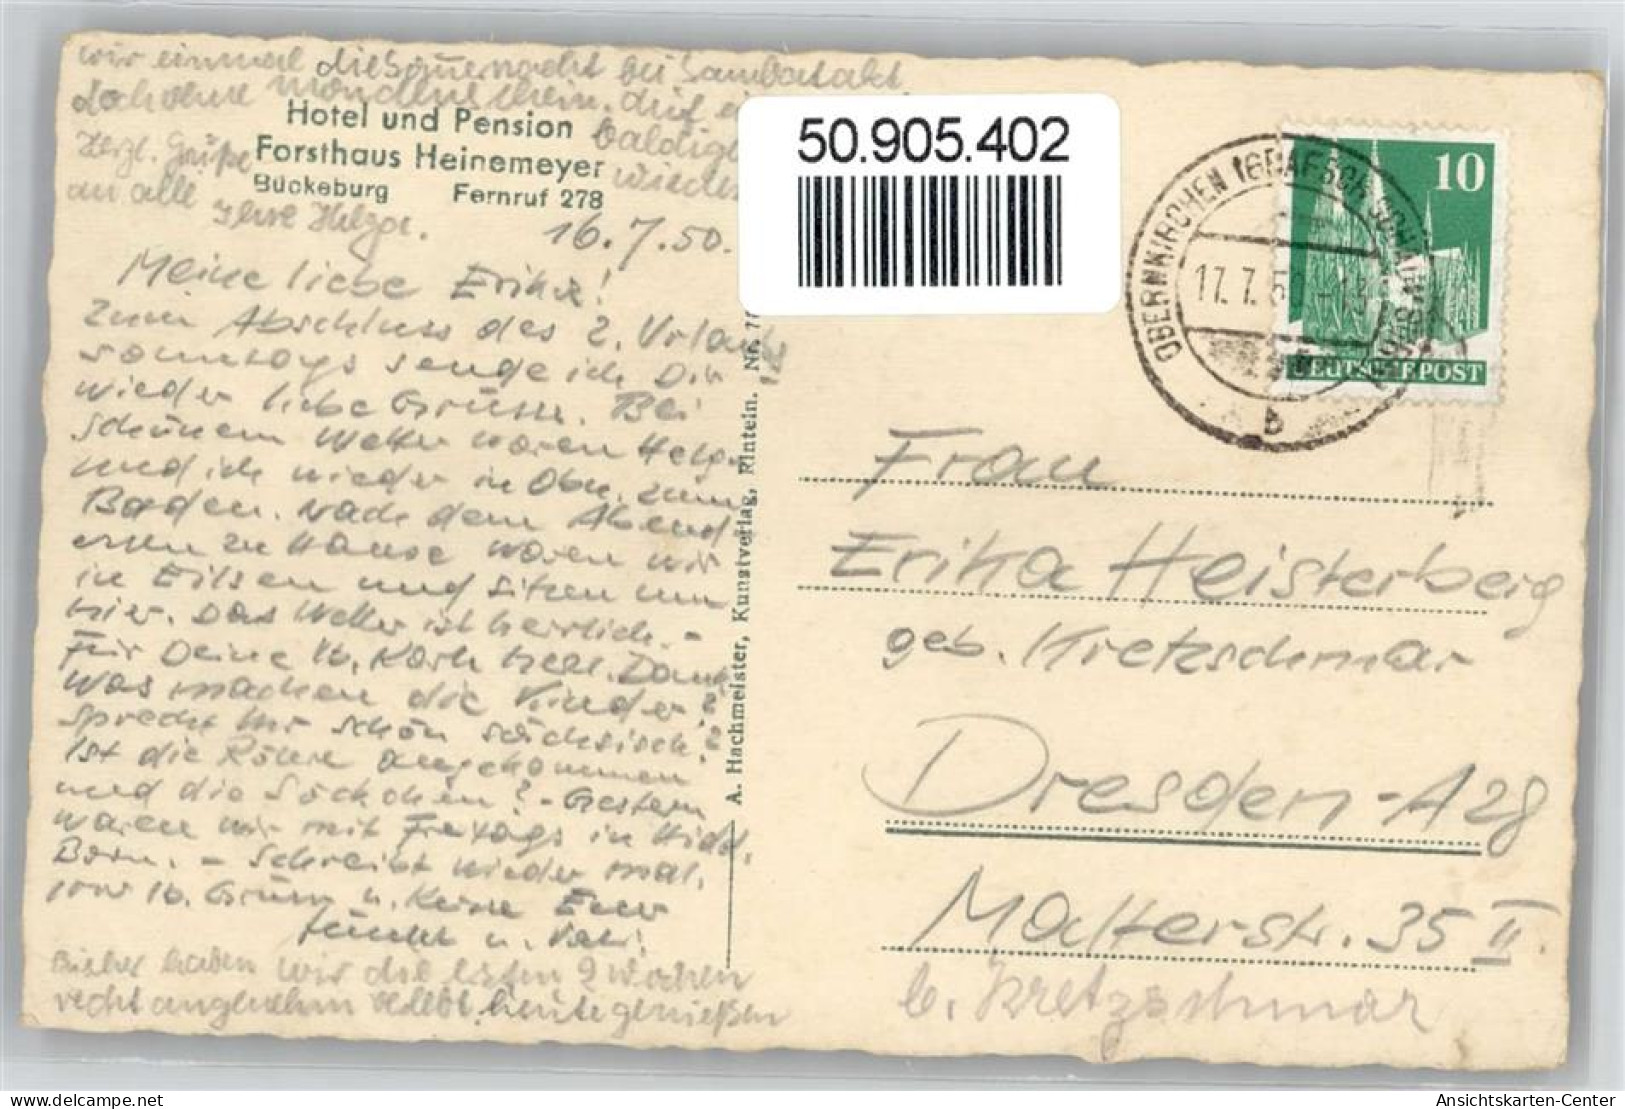 wir einmal die bei
doch ohne Mondenschein. Auf
Hotel und Pension
baldiges
Forsthaus Heinemeyer
Herzl. Grüße
Bückeburg Fernruf 278
an alle
Ihre Helga.
16.7.50.
Meine liebe Erika!
Zum Abschluss des 2. Urlaubs
sonntags sende ich Dir
wieder liebe Grüsse. Bei
schönem Wetter waren Helga
und ich wieder in Obk. zum
Baden. Nach dem Abend-
essen zu Hause waren wir
in Eilsen und sitzen nun
hier. Das Wetter ist herrlich. -
Für Deine lb. Karte herzl. Dank
Was machen die Kinder?
Sprecht Ihr schön sächsisch?
Ist die Röhre angekommen
und die Söckchen? - Gestern
waren wir mit Freitags in
Born. - Schreibt wieder mal.
lb. Grüsse u. Küsse Euer
u. Vati!
Bisher haben wir die ersten 2 Wochen
recht angenehm verlebt, heute genießen
A. Hachmeister, Kunstverlag, Rinteln. Nr.
50.905.402
OBERNKIRCHEN (GRAFSCH SCHAUMBURG)
17.7.50
b
10
DEUTSCHE POST
Frau
Erika Heisterberg
geb. Kretzschmar
Dresden-A 28
Malterstr. 35 II.
b. Kretzschmar
Ansichtskarten-Center
delcampe.net